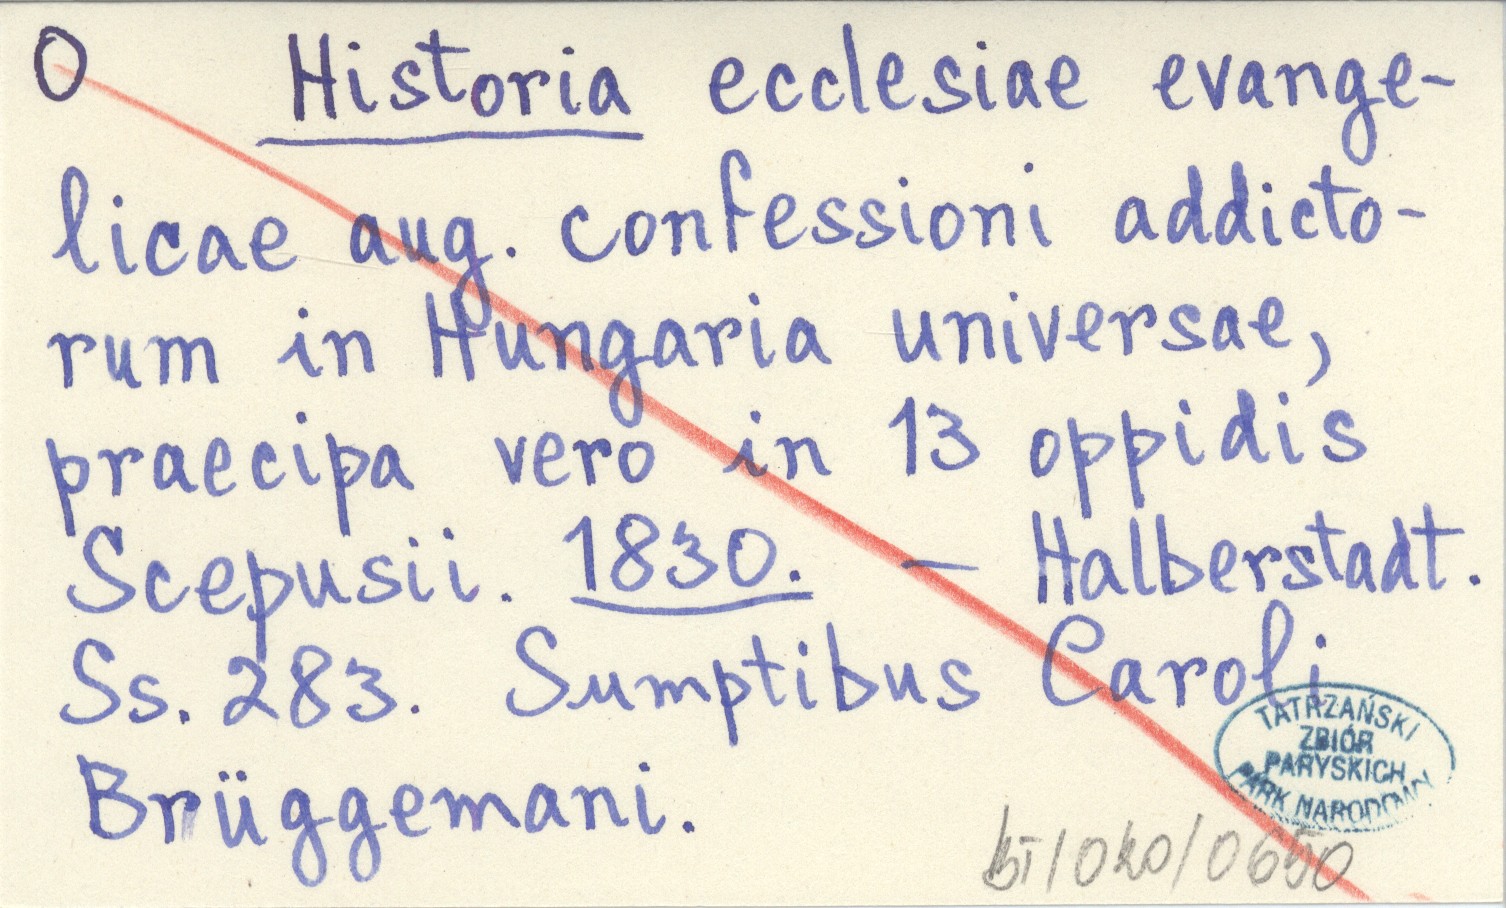 O Historia ecclesiae evange-
licae aug. confessioni addicto-
rum in Hungaria universae,
praecipa vero in 13 oppidis
Scepusii. 1830. — Halberstadt.
Ss. 283. Sumptibus Caroli
Brüggemani.
TATRZAŃSKI
ZBIÓR
PARYSKICH
PARK NARODOWY